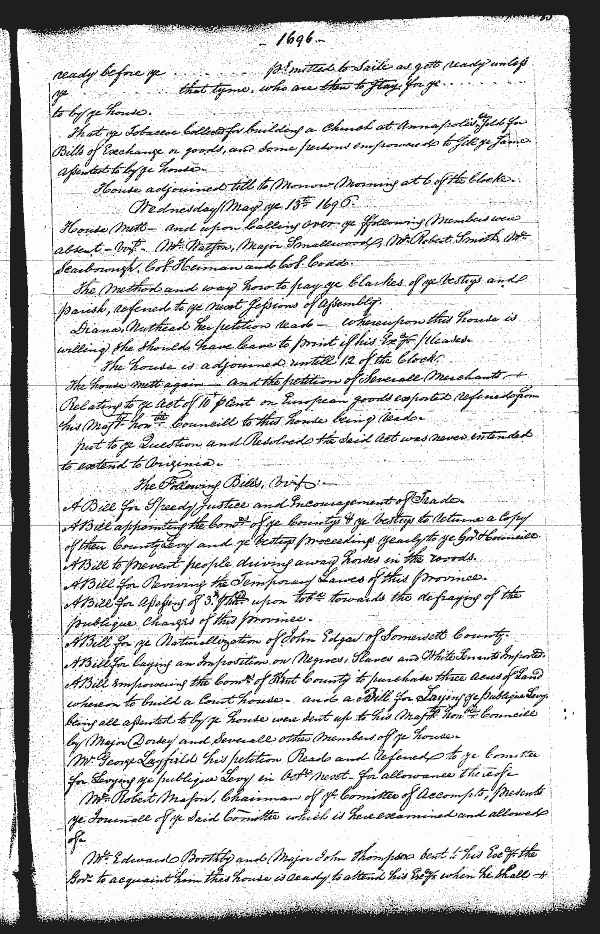 - 1696 -
ready before ye . . . . . . . p'mitted to Saile as gott ready unless
ye . . . . . . . that tyme, who are then to stay for ye
to by ye house.
That ye Tobacco Collected for building a Church at Annapolis be sold for
Bills of Exchange or goods, and some persons empowered to sell ye same
assented to by ye house.
House adjourned till to Morrow Morning at 6 of the Clock.
Wednesday May ye 13th 1696.
House Mett - and upon Calling over ye following Members were
absent - vizt - Mr Watson, Major Smallwood, Mr Robert Smith, Mr
Scarborough, Col. Herman and Col. Codd.
The Method and way how to pay ye Clarkes of ye Vestrys and
parish, referred to ye next Sessions of Assembly.
Diana Nuthead her petition read - whereupon this house is
willing she should have leave to print if his Excy pleases.
The house is adjourned untill 12 of the Clock.
The house mett again - and the petition of Severall Merchants
Relating to ye Act of 10 p Cent on European goods exported referred from
his Majts honble Councill to this house being read.
put to ye Question and Resolved the said Act was never intended
to extend to Virginia.
The Following Bills, Vizt.
A Bill for Speedy Justice and Encouragement of Trade.
A Bill appointing the Comrs of ye Countys & ye Vestrys to returne a Copy
of their County Levy and ye Vestrys proceedings yearly to ye Govr & Councill
A Bill to prevent people driving away horses in the woods.
A Bill for Reviving the Temporary Lawes of this Province.
A Bill for Assessing of 3d p hhd upon tobo towards the defraying of the
publique Charges of this province.
A Bill for ye Naturallization of John Edgar of Somersett County.
A Bill for laying an Imposition on Negroes, Slaves and White Servants Imported
A Bill Empowering the Comrs of Kent County to purchase three acres of Land
whereon to build a Court house - and a Bill for Laying ye publique Levy,
being all assented to by ye house were sent up to his Majts honble Councill
by Major Dorsey and Severall other Members of ye house.
Mr George Layfield his petition Read and referred to ye Comittee
for Levying ye publique Levy in Octr next for allowance thereof
Mr Robert Mason, Chairman of ye Comittee of Accompts, presents
ye Journall of ye said Comittee which is here examined and allowed
of.
Mr Edward Boothby and Major John Thompson sent to his Excy the
Govr to acquaint him this house is ready to attend his Excy when he shall